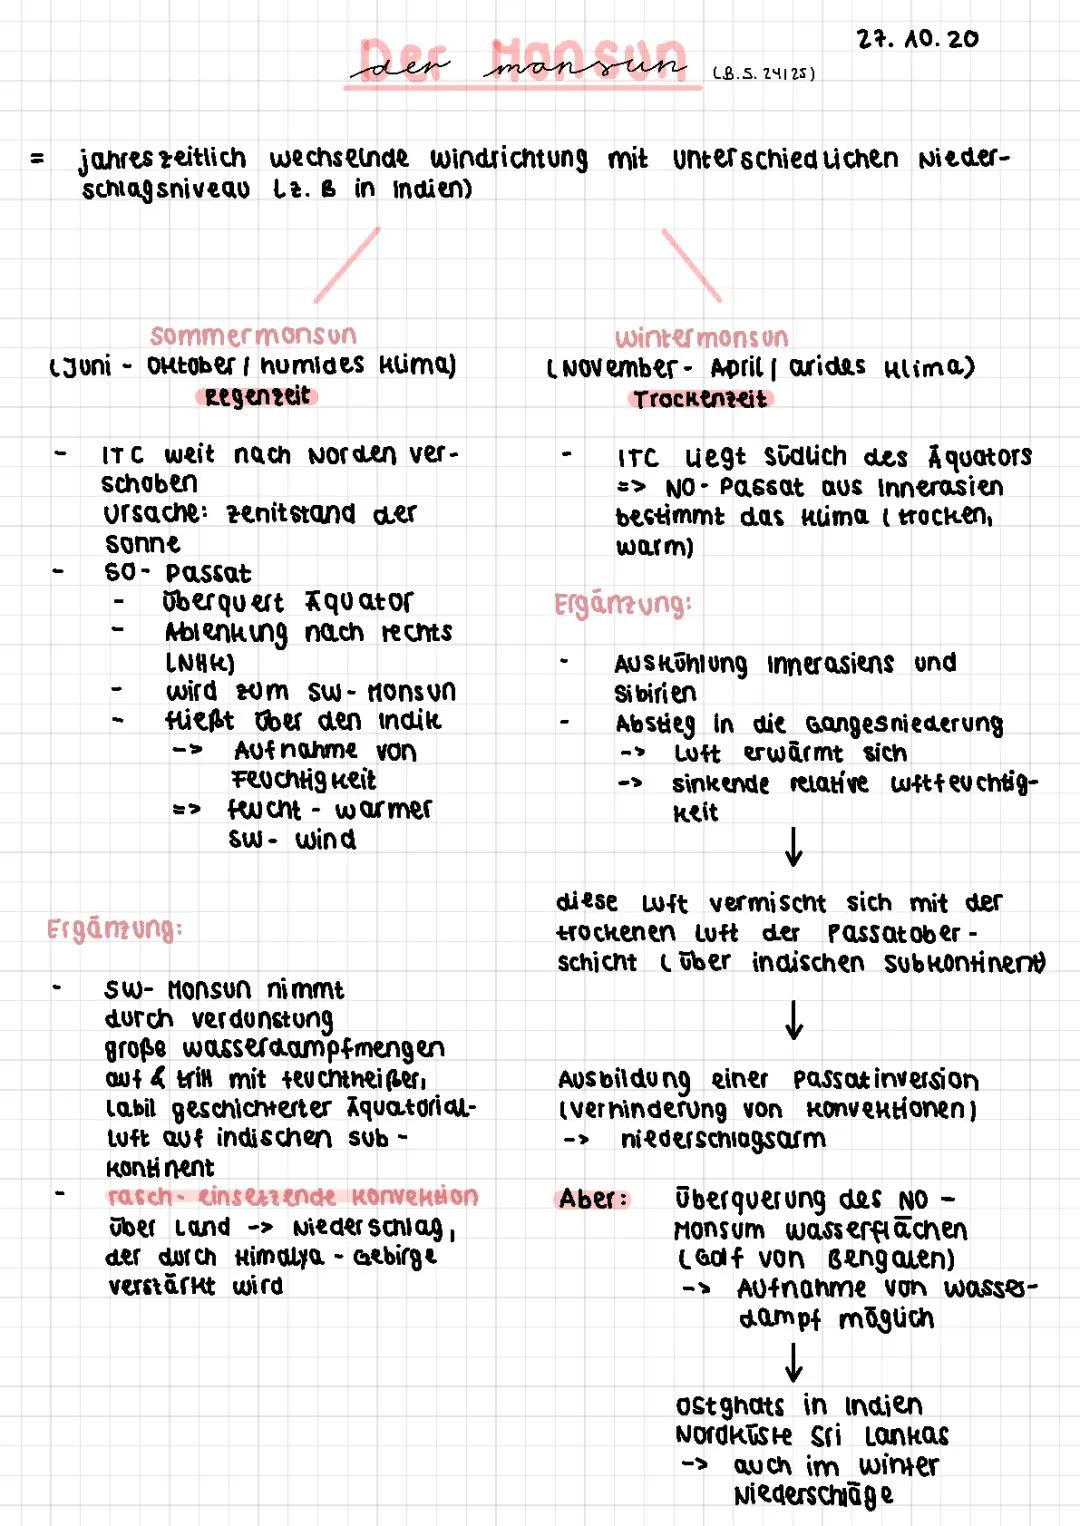 27.10.20
Der Monsun
der monsun (B.S. 24125)
= jahreszeitlich wechselnde Windrichtung mit unterschiedlichen Nieder-
schlagsniveau (z.B in Indien)
Sommermonsun
(Juni - Oktober / humides Klima)
Regenzeit
- ITC weit nach Norden ver-
schoben
Ursache: Zenitstand der
Sonne
- SO- Passat
- überquert Äquator
- Ablenkung nach rechts
(NHK)
- wird zum SW-Monsun
- fließt über den Indik
-> Aufnahme von
Feuchtigkeit
=> feucht - warmer
SW- Wind
Ergänzung:
- SW- Monsun nimmt
durch Verdunstung
große Wasserdampfmengen
auf & trifft mit feuchtheißer,
labil geschichteter Äquatorial-
luft auf indischen Sub-
kontinent
- rasch- einsetzende Konvektion
über Land -> Niederschlag,
der durch Himalya - Gebirge
verstärkt wird
Wintermonsun
(November - April / arides Klima)
Trockenzeit
- ITC liegt südlich des Äquators
=> NO- Passat aus Innerasien
bestimmt das Klima (trocken,
warm)
Ergänzung:
- Auskühlung Innerasiens und
Sibirien
- Abstieg in die Gangesniederung
-> Luft erwärmt sich
-> sinkende relative Luftfeuchtig-
keit
↓
diese Luft vermischt sich mit der
trockenen Luft der Passatober-
schicht (über indischen Subkontinent)
↓
Ausbildung einer Passatinversion
(Verhinderung von Konvektionen)
-> niederschlagsarm
Aber: Überquerung des NO -
Monsum Wasserflächen
(Golf von Bengalen)
-> Aufnahme von Wasser-
dampf möglich
↓
Ostghats in Indien
Nordküste Sri Lankas
-> auch im Winter
Niederschläge